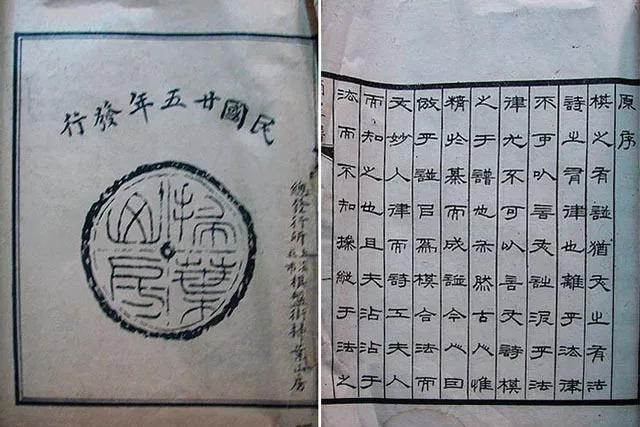 民國廿五年發行
掃葉山房
總發行所上海北市棋盤街掃葉山房
原序
棋之有譜猶文之有法
詩之有律也離乎法律
不可以言文詩泥乎法
律尤不可以言文詩棋
之于譜也亦然古人惟
精於棊而成譜今人日
倣乎譜㠯為模合法而
文妙入律而詩工夫人
而知之也且夫沾沾于
法而不知操縱于法之